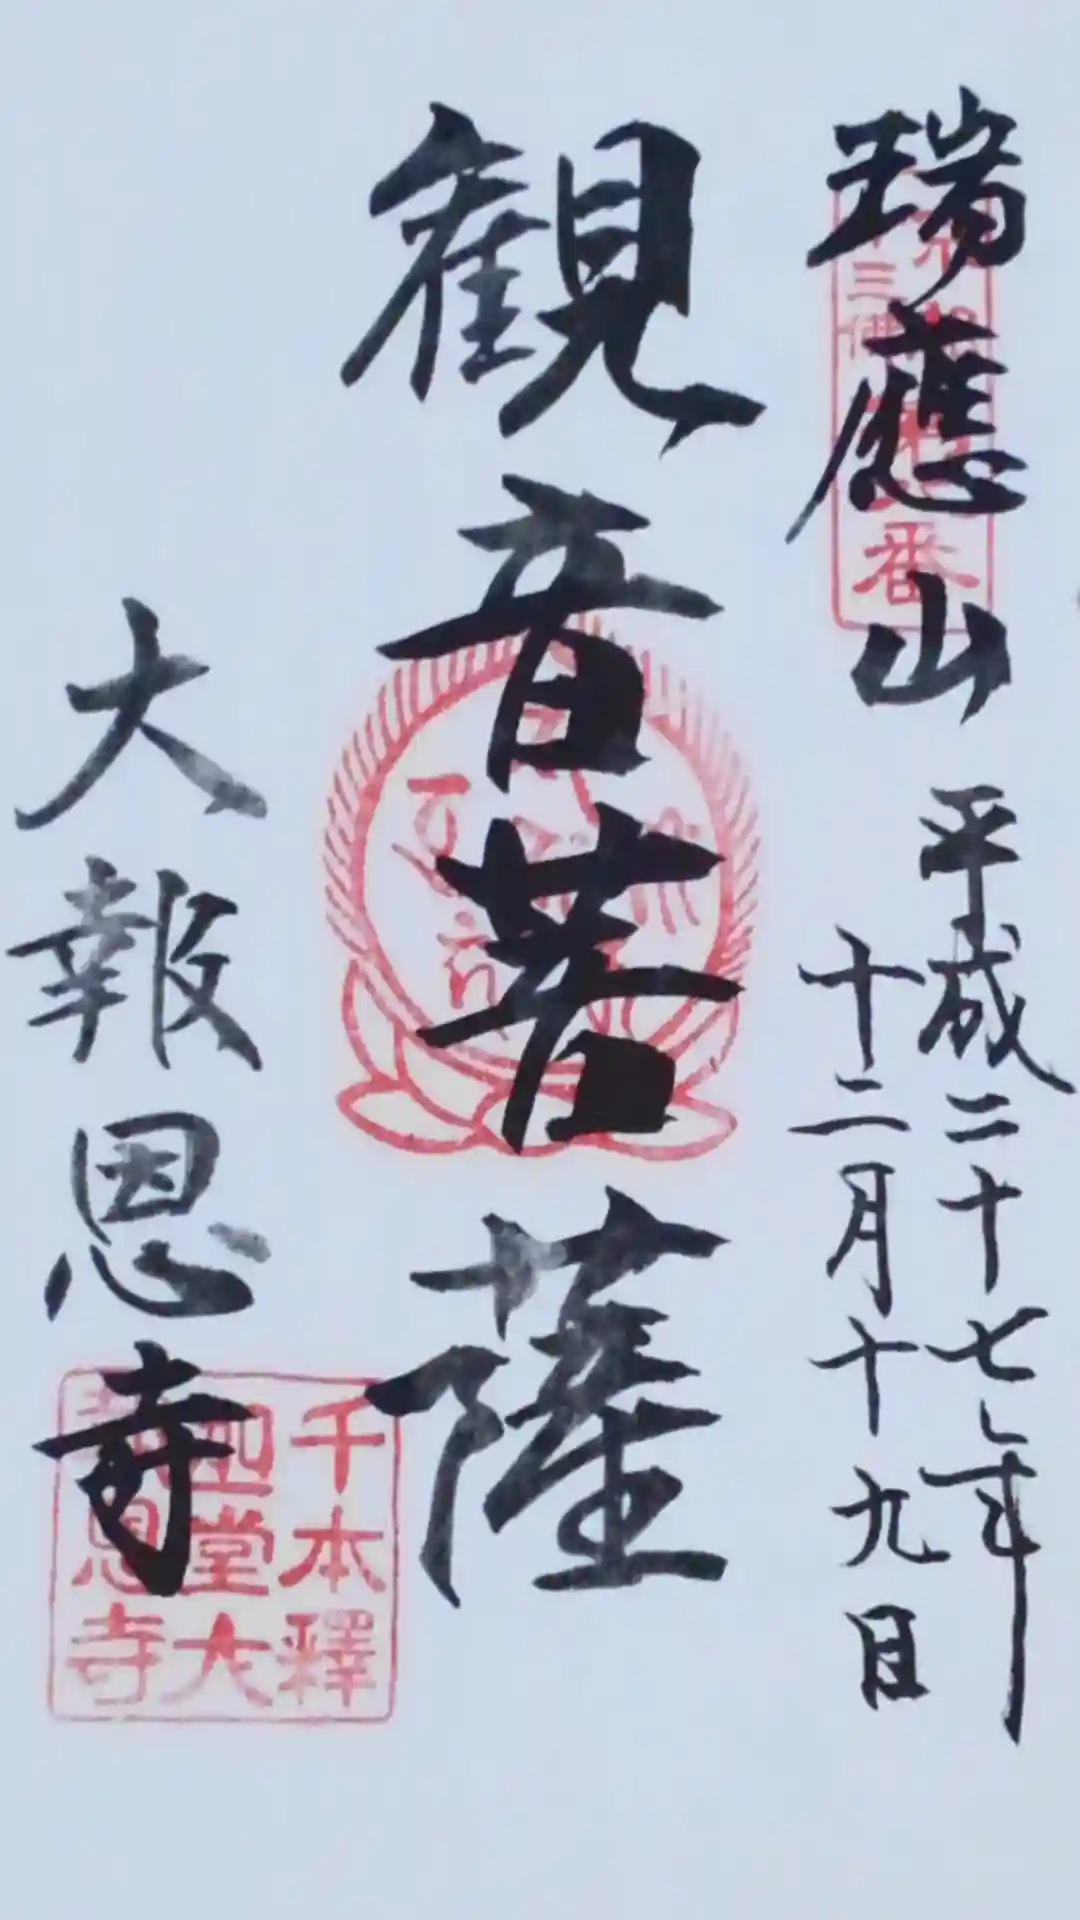 瑞應山
平成二十七年
十二月十九日
観音菩薩
大報恩寺
番
千本釋
迦堂大
報恩寺